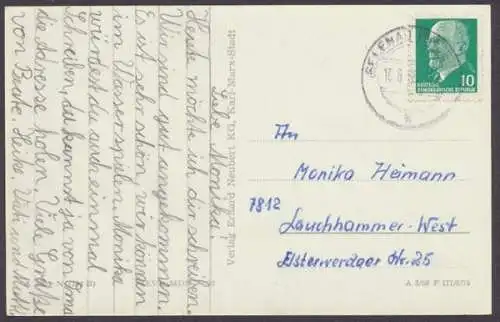 Liebe Monika!
Heute möchte ich dir schreiben.
Wir sind gut angekommen.
Es ist sehr schön, wir können
im Wasser spielen. Monika
würdest du auch einmal
schreiben, du kannst ja von Oma
die Adresse holen. Viele Grüße
von Beate, Heike,
Verlag Erhard Neubert KG, Karl-Marx-Stadt
10
DEUTSCHE
DEMOKRATISCHE REPUBLIK
An
Monika Heimann
7812
Lauchhammer-West
Elsterwerdaer Str. 25